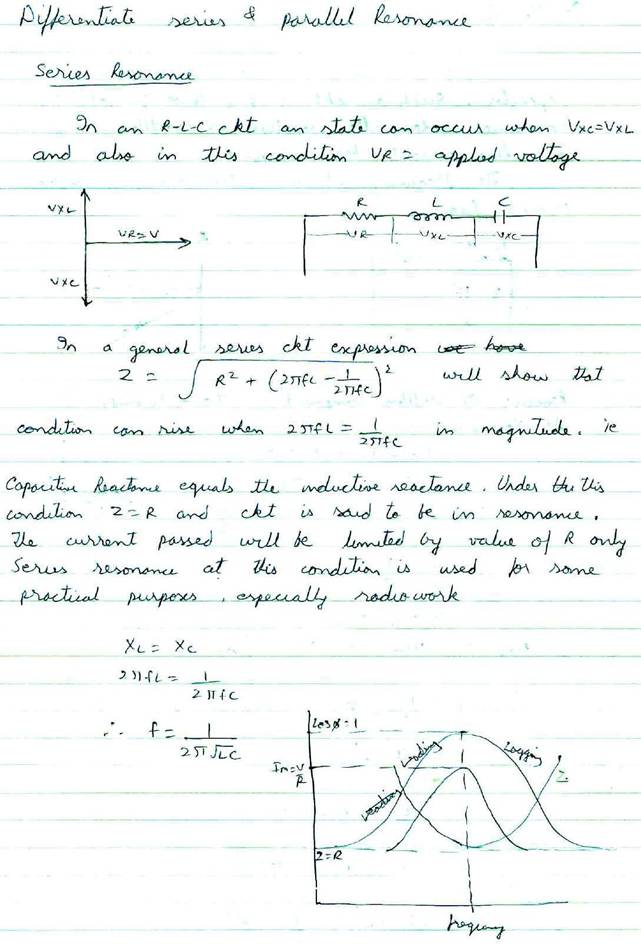 Differentiate series & parallel Resonance
Series Resonance
In an R-L-C ckt an state can occur when VXC=VXL
and also in this condition VR = applied voltage
VXL
VR=V
VXC
R L C
VR VXL VXC
In a general series ckt expression we have
Z = √R² + (2πfL - 1/2πfC)² will show that
condition can rise when 2πfL = 1/2πfC in magnitude. ie
Capacitive Reactance equals the inductive reactance. Under the this
condition Z=R and ckt is said to be in resonance.
The current passed will be limited by value of R only
Series resonance at this condition is used for some
practical purposes, especially radio work
XL = XC
2πfL = 1/2πfC
∴ f = 1/2π√LC
Cosø=1
Leading
Lagging
Im=V/R
Leading
Z
Z=R
frequency